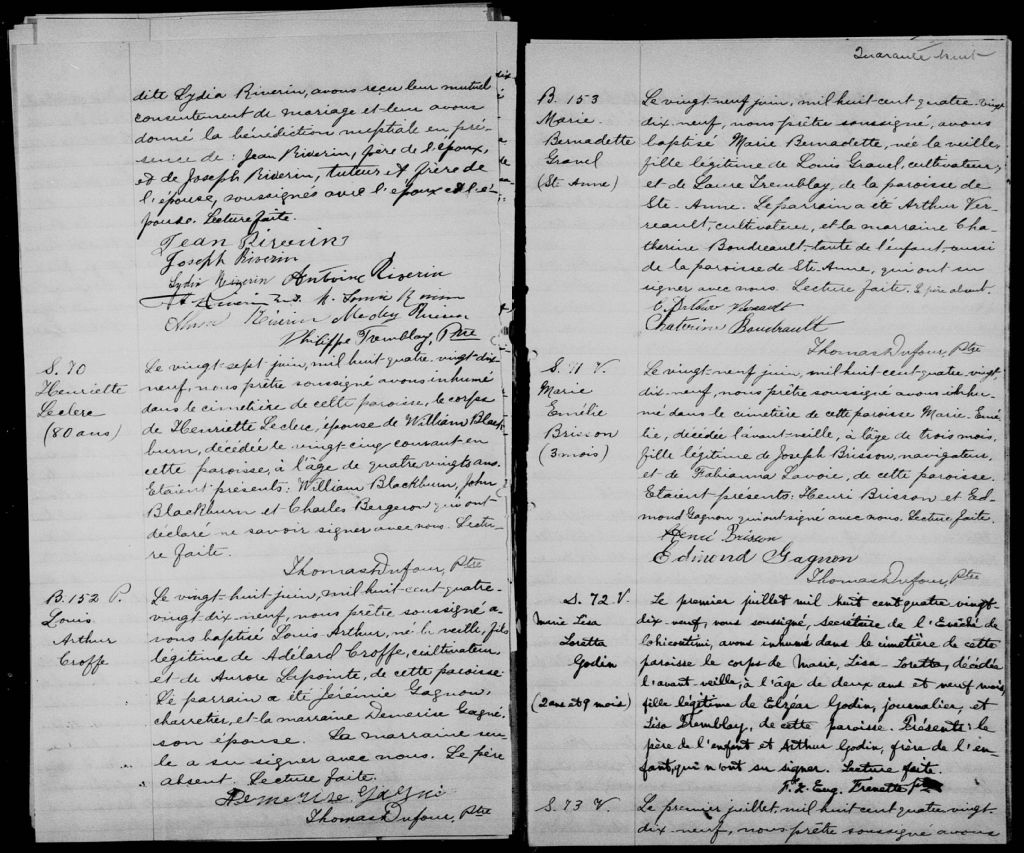 dite Lydia Riverin, avons reçu leur mutuel
consentement de mariage et leur avons
donné la bénédiction nuptiale en pré-
sence de: Jean Riverin, père de l'époux,
et de Joseph Riverin, tuteur et frère de
l'épouse, soussignés avec l'époux et l'é-
pouse. Lecture faite.
Jean Riverin
Joseph Riverin
Lydia Riverin Antoine Riverin
Riverin
Riverin
Philippe Tremblay, Ptre
S. 70
Henriette
Leclerc
(80 ans)
Le vingt-sept juin, mil huit cent quatre-vingt-dix-
neuf, nous prêtre soussigné avons inhumé
dans le cimetière de cette paroisse, le corps
de Henriette Leclerc, épouse de William Black-
burn, décédée le vingt-cinq courant en
cette paroisse, à l'âge de quatre vingts ans.
Etaient présents: William Blackburn, John
Blackburn et Charles Bergeron qui ont
déclaré ne savoir signer avec nous. Lectu-
re faite.
Thomas Dufour, Ptre
B. 152 P.
Louis
Arthur
Croffe
Le vingt-huit juin, mil-huit-cent-quatre-
vingt-dix-neuf, nous, prêtre soussigné a-
vons baptisé Louis Arthur, né la veille, fils
légitime de Adélard Croffe, cultivateur
et de Aurore Lapointe, de cette paroisse
Le parrain a été Jérémie Gagnon,
charretier, et la marraine Demerise Gagné,
son épouse. La marraine seu-
le a su signer avec nous. Le père
absent. Lecture faite.
Demerise Gagné
Thomas Dufour, Ptre
Quarante huit
B. 153
Marie
Bernadette
Gravel
(Ste Anne)
Le vingt-neuf juin, mil huit cent quatre-vingt
dix-neuf, nous prêtre soussigné, avons
baptisé Marie Bernadette, née la veille,
fille légitime de Louis Gravel, cultivateur,
et de Laure Tremblay, de la paroisse de
Ste-Anne. Le parrain a été Arthur Ver-
reault, cultivateur, et la marraine Cha-
therine Boudreault, tante de l'enfant, aussi
de la paroisse de Ste Anne, qui ont su
signer avec nous. Lecture faite. Le père absent.
Chaterine Boudrault
Thomas Dufour, Ptre
S. 71 V.
Marie
Emélie
Brisson
(3 mois)
Le vingt-neuf juin, mil huit cent quatre vingt
dix-neuf, nous prêtre soussigné avons inhu-
mé dans le cimetière de cette paroisse Marie-Emé-
lie, décédée l'avant-veille, à l'âge de trois mois,
fille légitime de Joseph Brisson, navigateur,
et de Fabianna Lavoie, de cette paroisse.
Etaient présents: Henri Brisson et Ed-
mond Gagnon qui ont signé avec nous. Lecture faite.
Henri Brisson
Edmond Gagnon
Thomas Dufour, Ptre
S. 72 V
Marie Lisa
Loretta
Godin
(2 ans et 9 mois)
Le premier juillet mil huit cent quatre vingt-
dix-neuf, nous soussigné, secrétaire de l'Evêché de
Chicoutimi, avons inhumé dans le cimetière de cette
paroisse le corps de Marie, Lisa-Loretta, décédée
l'avant veille, à l'âge de deux ans et neuf mois,
fille légitime de Elzéar Godin, journalier, et
Lisa Tremblay, de cette paroisse. Présents: le
père de l'enfant et Arthur Godin, frère de l'en-
fant, qui n'ont su signer. Lecture faite.
F. X. Eug. Frenette Ptre
S. 73 V.
Le premier juillet, mil huit cent quatre vingt
dix-neuf, nous prêtre soussigné avons